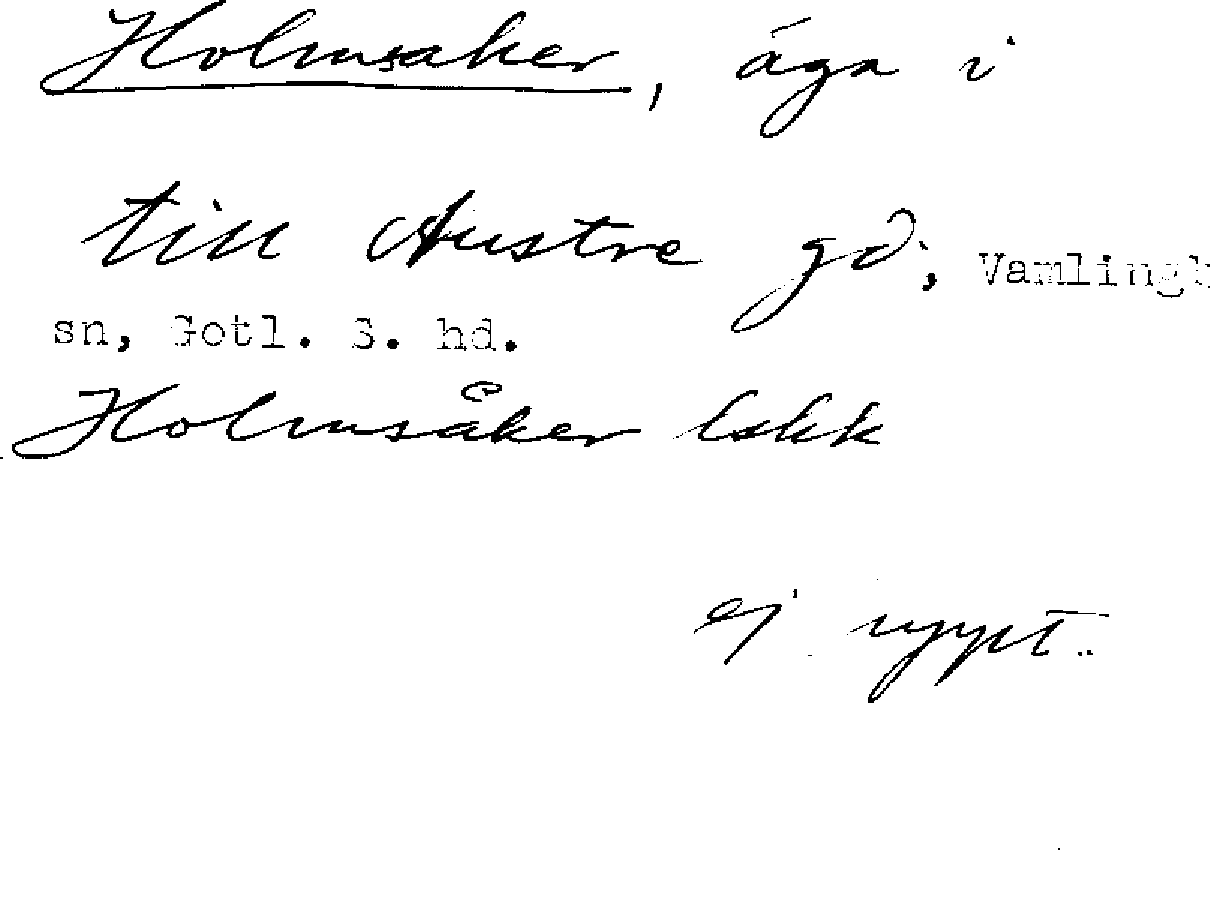 Holmsaker, äga i
till Austre gd, Vamlingb
sn, Gotl. S. hd.
Holmsåker lskk
ej uppt.